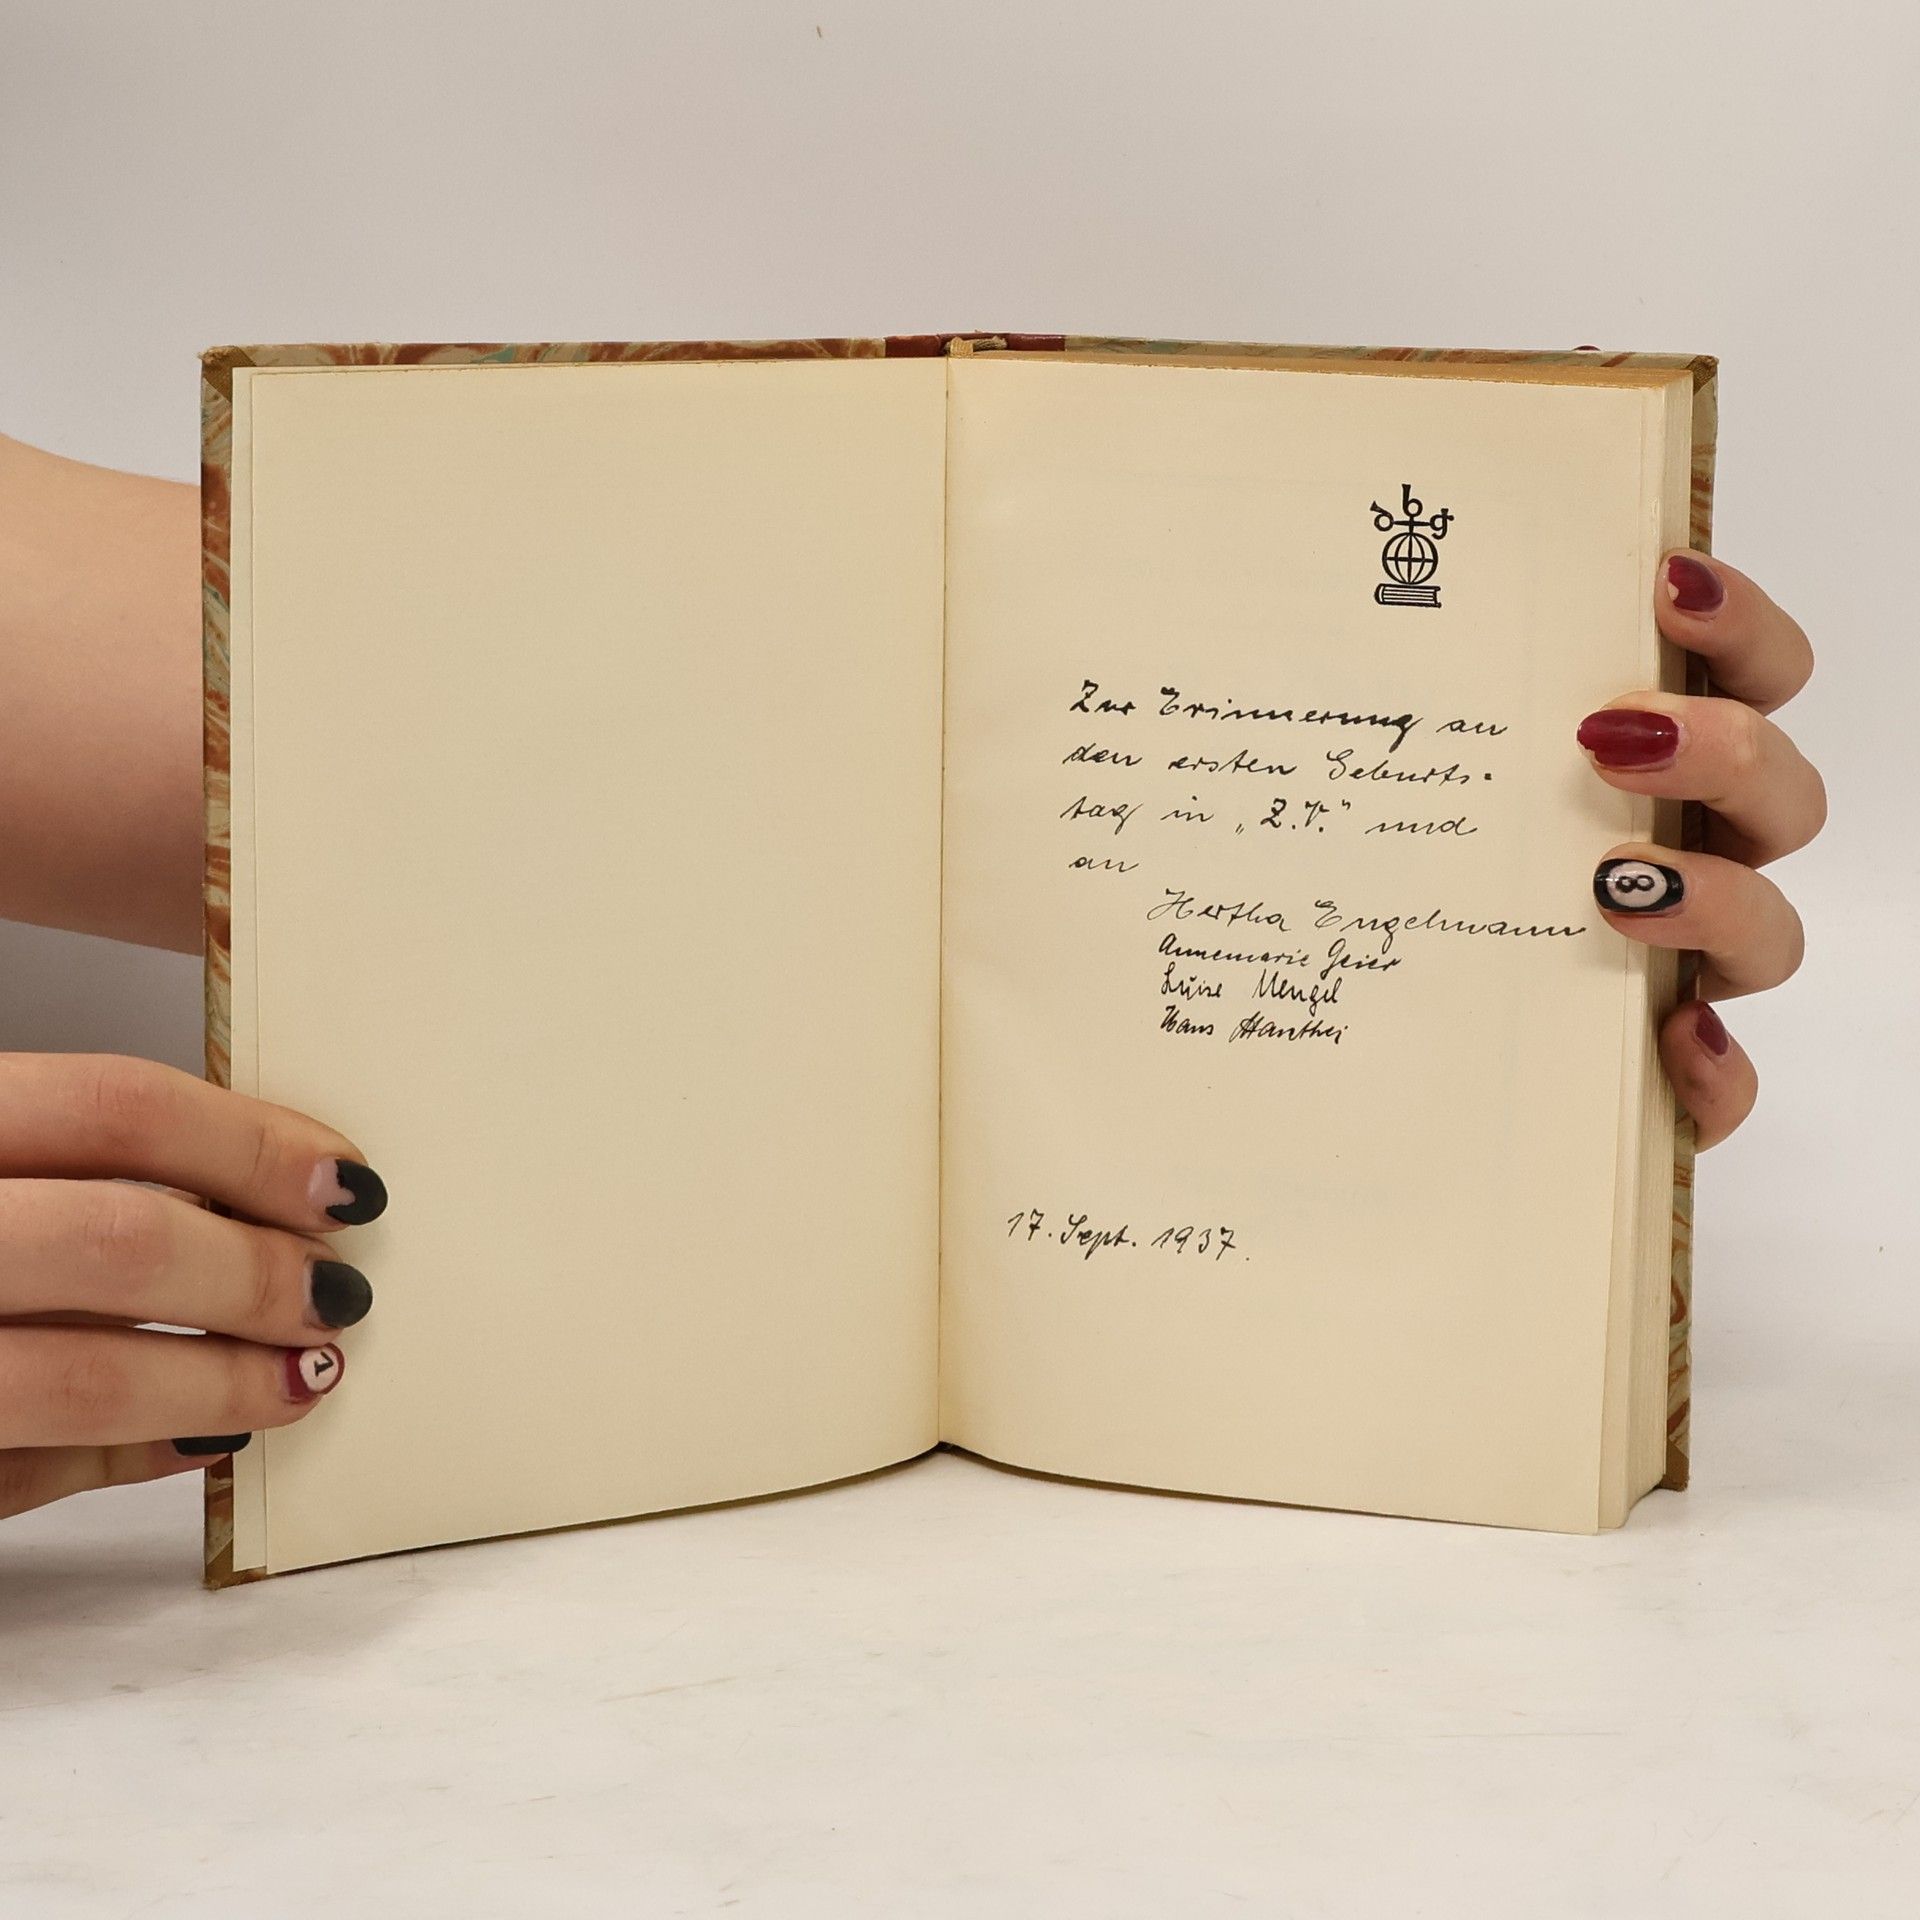 dbg
Zur Erinnerung an
den ersten Geburts-
tag in „Z.V." und
an
Hertha Engelmann
Annemarie Geier
Luise Mengel
Hans Manthei
17. Sept. 1937.
8
7